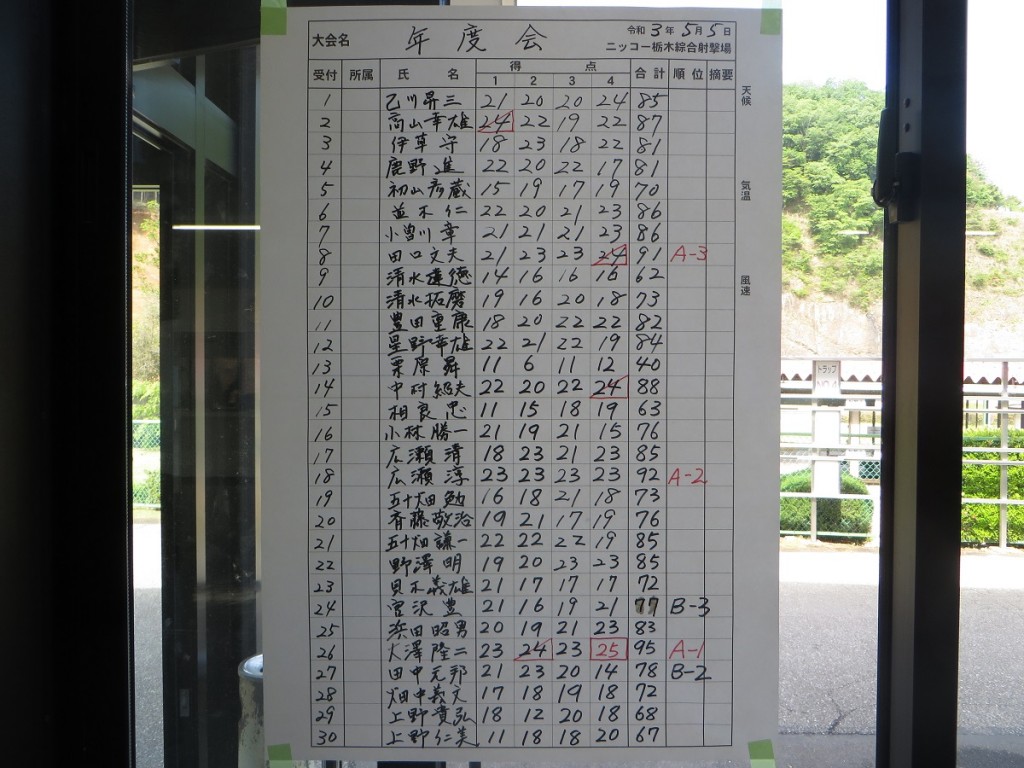 令和 3 年 5 月 5 日
大会名 年度会 ニッコー栃木綜合射撃場
受付 所属 氏名 得点 合計 順位 摘要
1 2 3 4
1 乙川昇三 21 20 20 24 85
2 高山幸雄 24 22 19 22 87
3 伊草守 18 23 18 22 81
4 鹿野進 22 20 22 17 81
5 初山彦蔵 15 19 17 19 70
6 並木仁 22 20 21 23 86
7 小曽川幸 21 21 21 23 86
8 田口文夫 21 23 23 24 91 A-3
9 清水達徳 14 16 16 16 62
10 清水拓磨 19 16 20 18 73
11 豊田重康 18 20 22 22 82
12 星野幸雄 22 21 22 19 84
13 栗原昇 11 6 11 12 40
14 中村 22 20 22 24 88
15 相良忠 11 15 18 19 63
16 小林勝一 21 19 21 15 76
17 広瀬清 18 23 21 23 85
18 広瀬淳 23 23 23 23 92 A-2
19 五十畑勉 16 18 21 18 73
20 斉藤敬治 19 21 17 19 76
21 五十畑謙一 22 22 22 19 85
22 野澤明 19 20 23 23 85
23 貝木義雄 21 17 17 17 72
24 宮沢豊 21 16 19 21 77 B-3
25 浜田昭男 20 19 21 23 83
26 大澤陸二 23 24 23 25 95 A-1
27 田中元邦 21 23 20 14 78 B-2
28 畑中義文 17 18 19 18 72
29 上野貴弘 18 12 20 18 68
30 上野仁美 11 18 18 20 67
天候
気温
風速
トラップ